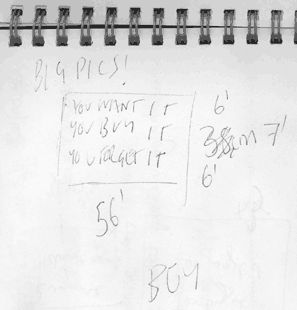 BIG PICS!
YOU WANT IT 6'
YOU BUY IT 7'
YOU FORGET IT 6'
56'
BUY